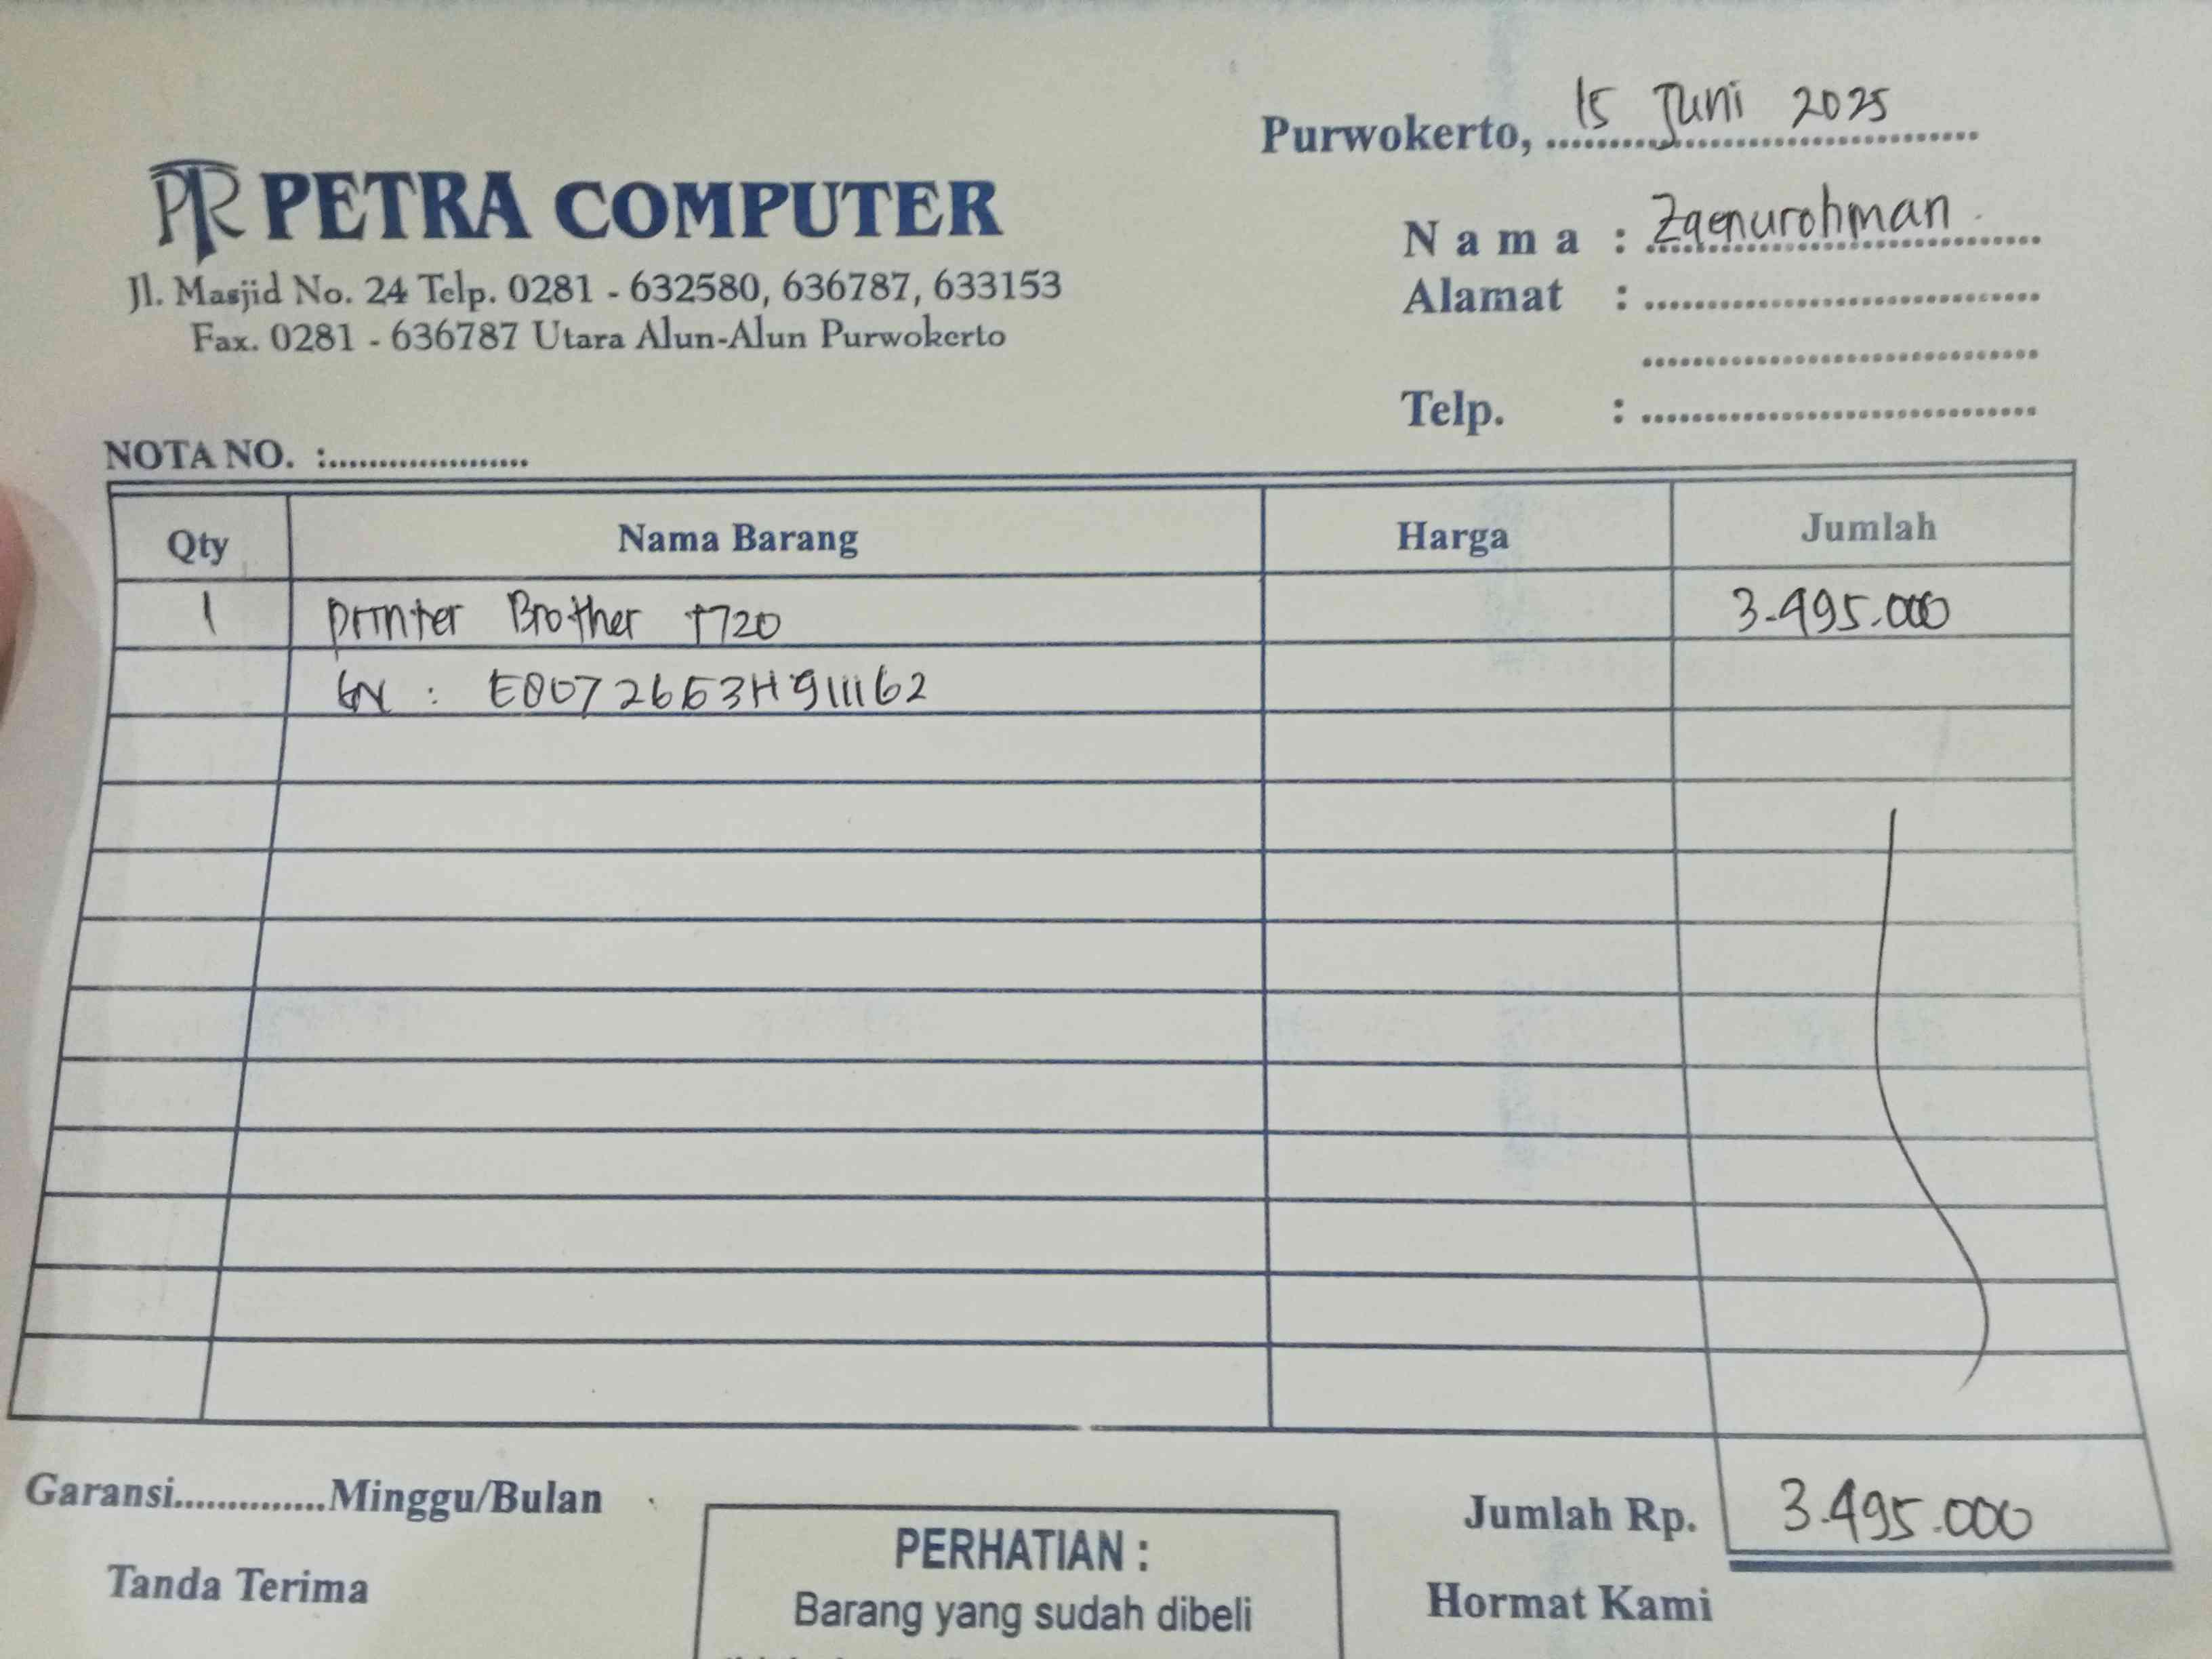 Purwokerto, 15 Juni 2025
PR PETRA COMPUTER
Jl. Masjid No. 24 Telp. 0281 - 632580, 636787, 633153
Fax. 0281 - 636787 Utara Alun-Alun Purwokerto
Nama : Zaenurohman
Alamat :
Telp. :
NOTA NO. :
Qty Nama Barang Harga Jumlah
1 Printer Brother T720 3.495.000
SN :
Garansi..............Minggu/Bulan
Jumlah Rp. 3.495.000
Tanda Terima
PERHATIAN :
Barang yang sudah dibeli
Hormat Kami